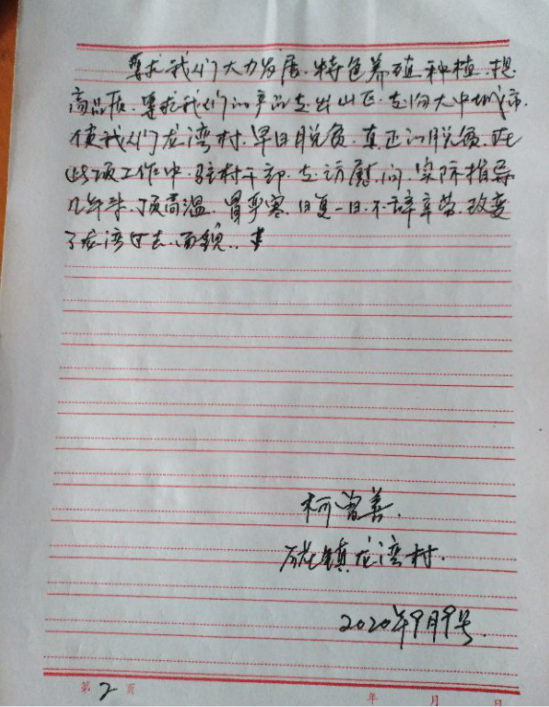 要求我们大力发展.特色养殖种植.提
高品质.要求我们的产品走出山区.走向大中城市.
使我们龙湾村.早日脱贫.真正的脱贫.在
此项工作中.驻村干部.走访慰问.实际指导
几年来.顶高温.冒严寒.日复一日.不辞辛劳.改变
了龙湾过去.面貌..
柯曾善.
镇龙湾村.
2020年9月9号.
第2页
年 月 日